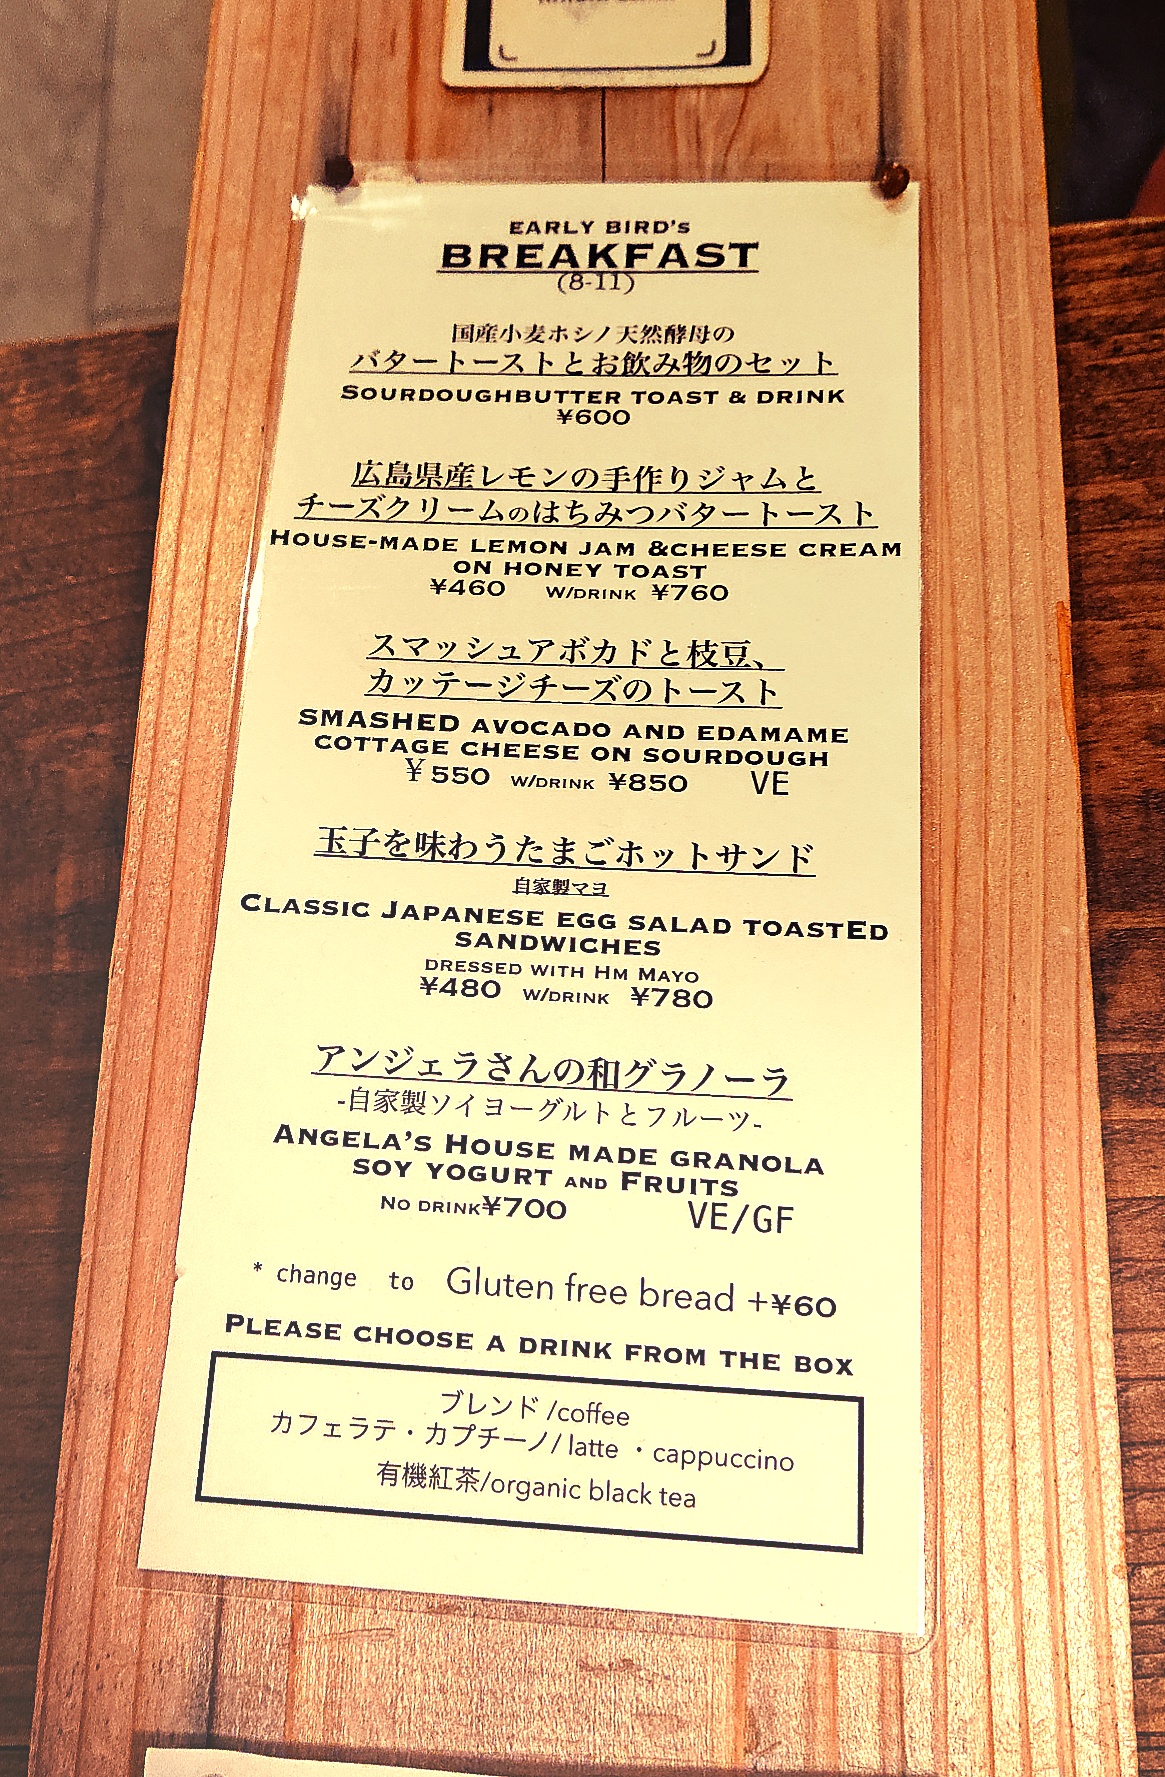 EARLY BIRD's
BREAKFAST
(8-11)
国産小麦ホシノ天然酵母の
バタートーストとお飲み物のセット
SOURDOUGHBUTTER TOAST & DRINK
¥600
広島県産レモンの手作りジャムと
チーズクリームのはちみつバタートースト
HOUSE-MADE LEMON JAM &CHEESE CREAM
ON HONEY TOAST
¥460 W/DRINK ¥760
スマッシュアボカドと枝豆、
カッテージチーズのトースト
SMASHED AVOCADO AND EDAMAME
COTTAGE CHEESE ON SOURDOUGH
¥550 W/DRINK ¥850 VE
玉子を味わうたまごホットサンド
自家製マヨ
CLASSIC JAPANESE EGG SALAD TOASTED
SANDWICHES
DRESSED WITH HM MAYO
¥480 W/DRINK ¥780
アンジェラさんの和グラノーラ
-自家製ソイヨーグルトとフルーツ-
ANGELA'S HOUSE MADE GRANOLA
SOY YOGURT AND FRUITS
NO DRINK¥700 VE/GF
* change to Gluten free bread +¥60
PLEASE CHOOSE A DRINK FROM THE BOX
ブレンド/coffee
カフェラテ・カプチーノ/latte ・cappuccino
有機紅茶/organic black tea